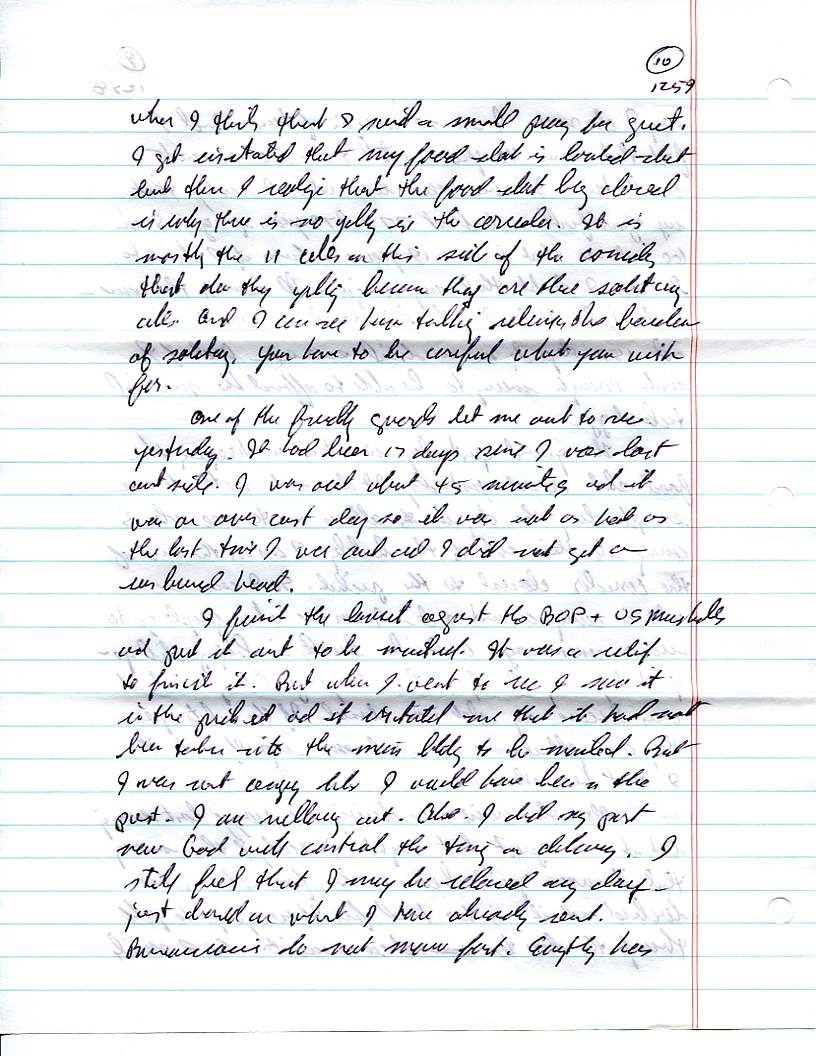 10
1259
when I think that I said a small pray for quiet.
I get irritated that my food slot is locked shut
but then I realize that the food slot being closed
is why there is no yelling in the corridor. It is
mostly the 11 cells on this side of the corridor
that do the yelling because they are the solitary
cells. And I can see how talking relieves the burden
of solitary. You have to be careful what you wish
for.
One of the friendly guards let me out to rec
yesterday. It had been 17 days since I was last
outside. I was out about 45 minutes and it
was an over cast day so it was not as bad as
the last time I was out and I did not get a
sunburned head.
I finish the lawsuit against the BOP + US Marshalls
and put it out to be mailed. It was a relief
to finish it. But when I went to rec I saw it
in the and it irritated me that it had not
been taken into the main bldg to be mailed. But
I was not angry like I would have been in the
past. I am mellowing out. Also I did my part
now God will control the timing on delivery. I
still feel that I may be released any day
just based on what I have already sent.
Bureaucracies do not move fast. has